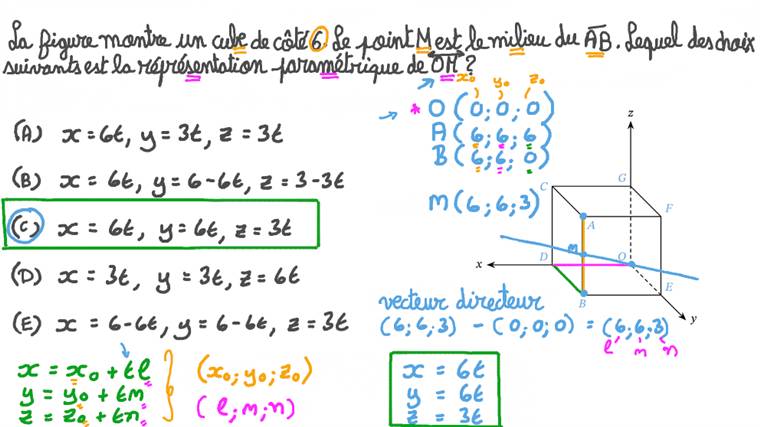 La figure montre un cube de côté 6. Le point M est le milieu du AB. Lequel des choix
suivants est la représentation paramétrique de OM ?
x₀ y₀ z₀
* O (0; 0; 0)
A (6; 6; 6)
B (6; 6; 0)
M (6; 6; 3)
(A) x = 6t, y = 3t, z = 3t
(B) x = 6t, y = 6-6t, z = 3-3t
(C) x = 6t, y = 6t, z = 3t
(D) x = 3t, y = 3t, z = 6t
(E) x = 6-6t, y = 6-6t, z = 3t
z
C
G
F
A
M
x
D
O
E
B
y
vecteur directeur
(6; 6; 3) - (0; 0; 0) = (6; 6; 3)
l m n
x = x₀ + tl
y = y₀ + tm
z = z₀ + tn
(x₀; y₀; z₀)
(l; m; n)
x = 6t
y = 6t
z = 3t